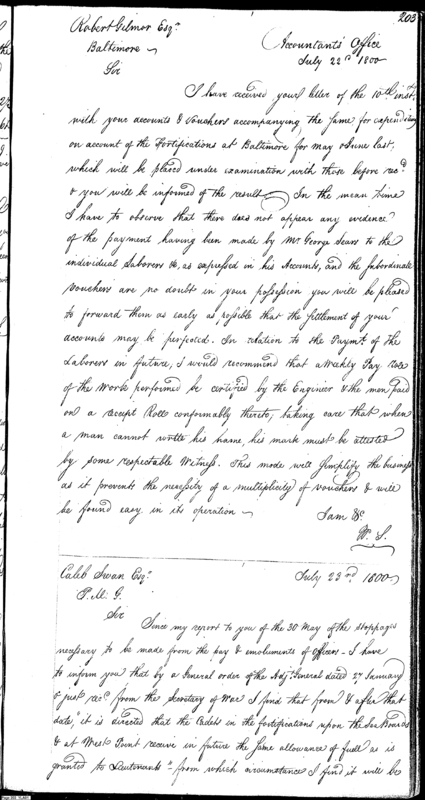 203
Robert Gilmor Esqr.
Baltimore
Accountants' Office
July 22d 1800
Sir
I have received your letter of the 10th inst.
with your accounts & Vouchers accompanying the same for expenditures
on account of the Fortifications at Baltimore for May & June last,
which will be placed under examination with those before recd.
& you will be informed of the result. In the mean time
I have to observe that there does not appear any evidence
of the payment having been made by Mr. George Sears to the
individual Laborers &c, as expressed in his Accounts, and the Subordinate
Vouchers are no doubt in your possession you will be pleased
to forward them as early as possible that the settlement of your
accounts may be perfected. In relation to the Paymt. of the
Laborers in future, I would recommend that a Weekly Pay Role
of the Work performed be certified by the Engineer & the men paid
on a receipt Roll conformably thereto, taking care that when
a man cannot write his name, his mark must be attested
by some respectable Witness. This mode will simplify the business
as it prevents the necessity of a multiplicity of vouchers & will
be found easy in its operation
I am &c.
W. S.
Caleb Swan Esqr.
July 23rd 1800
P. M. G.
Sir
Since my report to you of the 30 May of the stoppages
necessary to be made from the pay & emoluments of Officers - I have
to inform you that by a General order of the Adjt. General dated 27 January
& just recd. from the Secretary of War I find that from & after that
date, "it is directed that the Cadets in the fortifications upon the Sea Board
& at West Point receive in future the same allowance of fuel as is
granted to Lieutenants" - from which circumstance I find it will be